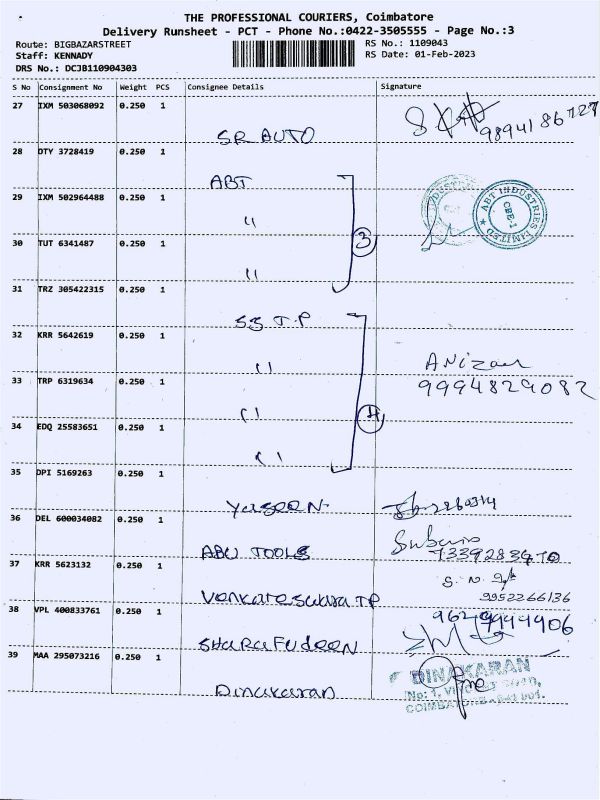 THE PROFESSIONAL COURIERS, Coimbatore
Delivery Runsheet - PCT - Phone No.:0422-3505555 - Page No.:3
Route: BIGBAZARSTREET
RS No.: 1109043
Staff: KENNADY
RS Date: 01-Feb-2023
DRS No.: DCJB110904303
S No Consignment No Weight PCS Consignee Details Signature
27 IXM 503068092 0.250 1
SR AUTO 9894186727
28 DTY 3728419 0.250 1
ABT
29 IXM 502964488 0.250 1
"
ABT INDUSTRIES LIMITED
CBE-1
30 TUT 6341487 0.250 1
3
"
31 TRZ 305422315 0.250 1
SS T.P
32 KRR 5642619 0.250 1
"
33 TRP 6319634 0.250 1
9994829082
"
34 EDQ 25583651 0.250 1
4
"
35 DPI 5169263 0.250 1
Yaseen
36 DEL 600034082 0.250 1
ABU TOOLS
37 KRR 5623132 0.250 1
Venkateswara TP 9952266136
38 VPL 400833761 0.250 1
SHARAFUDEEN
39 MAA 295073216 0.250 1
DINAKARAN
Dinakaran